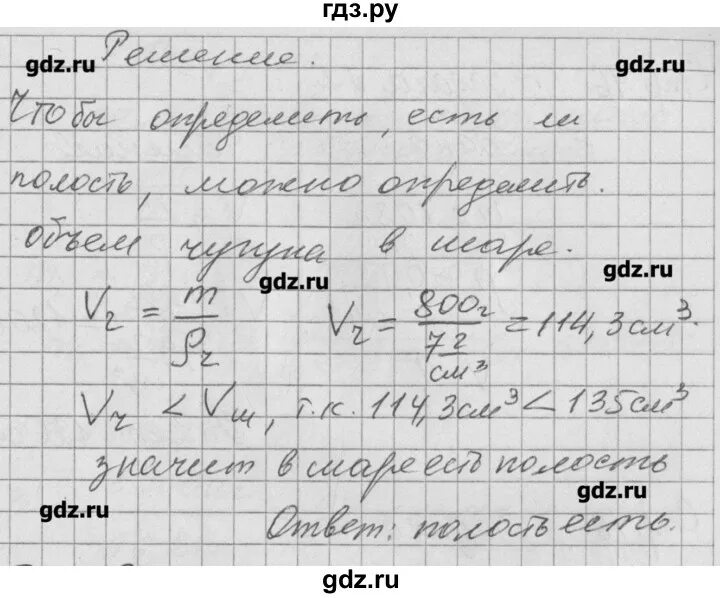 гдз.ру
Решение.
gdz.ru
gdz.ru
Чтобы определить, есть ли
полость, можно определить.
объем чугуна в шаре.
gdz.ru
gdz.ru
Vч = m/ρч    Vч = 800г/7 г/см³ = 114,3см³.
Vч < Vш, т.к. 114,3см³ < 135см³
значит в шаре есть полость
gdz.ru
gdz.ru
Ответ: полость есть.
gdz.ru